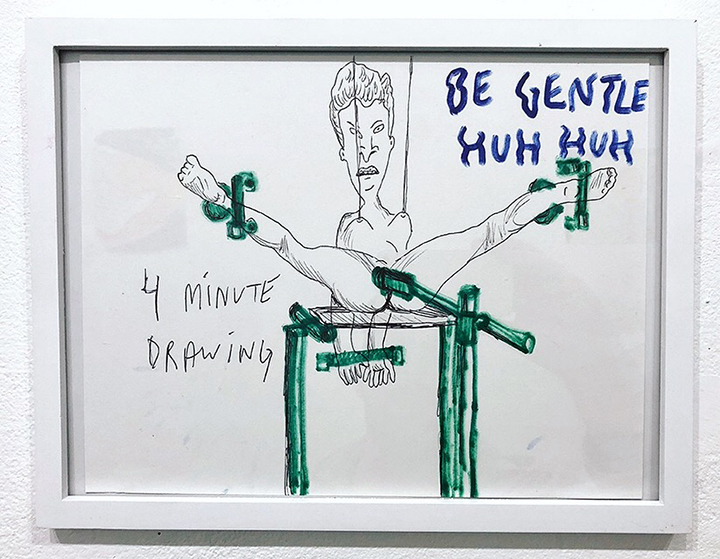 BE GENTLE
HUH HUH
4 MINUTE
DRAWING